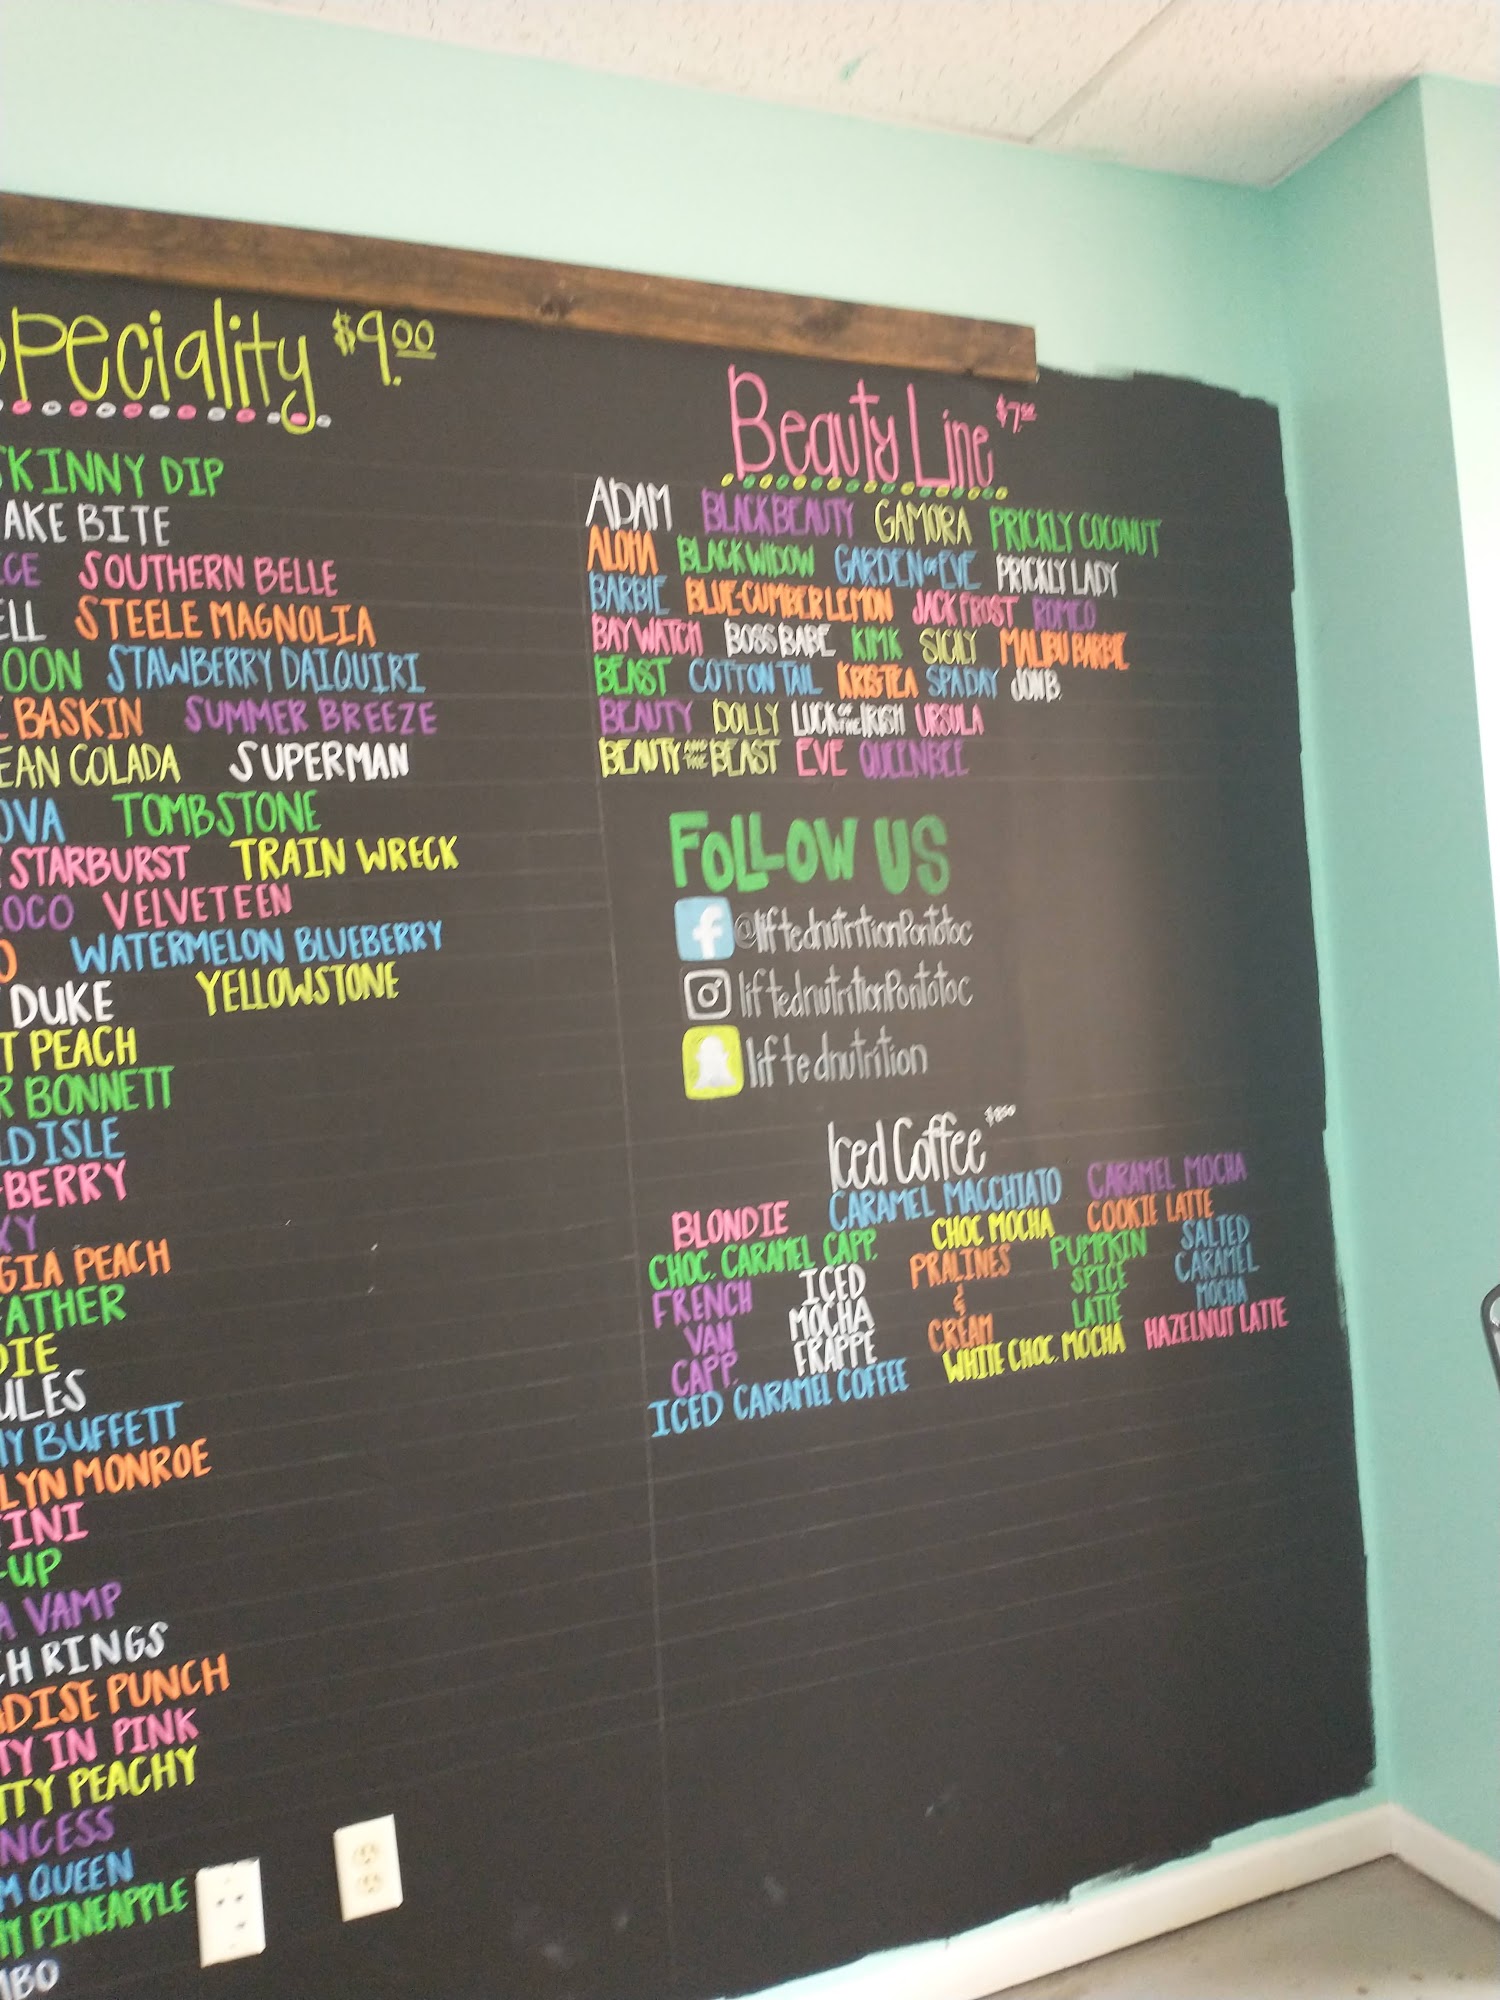 Speciality $9.00
SKINNY DIP
BITE
SOUTHERN BELLE
STEELE MAGNOLIA
STAWBERRY DAIQUIRI
BASKIN SUMMER BREEZE
COLADA SUPERMAN
TOMBSTONE
STARBURST TRAIN WRECK
VELVETEEN
WATERMELON BLUEBERRY
DUKE YELLOWSTONE
PEACH
BONNETT
ISLE
BERRY
PEACH
BUFFETT
MONROE
-UP
VAMP
RINGS
PUNCH
IN PINK
PEACHY
QUEEN
PINEAPPLE
Beauty Line
ADAM BLACK BEAUTY GAMORA PRICKLY COCONUT
ALOHA BLACK WIDOW GARDEN of EVE PRICKLY LADY
BARBIE BLUE-CUMBER LEMON JACK FROST ROMEO
BAYWATCH BOSS BABE KIM K SICILY MALIBU BARBIE
BEAST COTTON TAIL KRISTEA SPA DAY JON B.
BEAUTY DOLLY LUCK OF THE IRISH URSULA
BEAUTY AND THE BEAST EVE QUEEN BEE
FOLLOW US
@liftednutritionPontotoc
liftednutritionPontotoc
liftednutrition
Iced Coffee
BLONDIE CARAMEL MACCHIATO CARAMEL MOCHA
CHOC. CARAMEL CAPP. CHOC MOCHA COOKIE LATTE
FRENCH VAN CAPP. ICED MOCHA FRAPPE PRALINES & CREAM PUMPKIN SPICE LATTE SALTED CARAMEL MOCHA
ICED CARAMEL COFFEE WHITE CHOC. MOCHA HAZELNUT LATTE